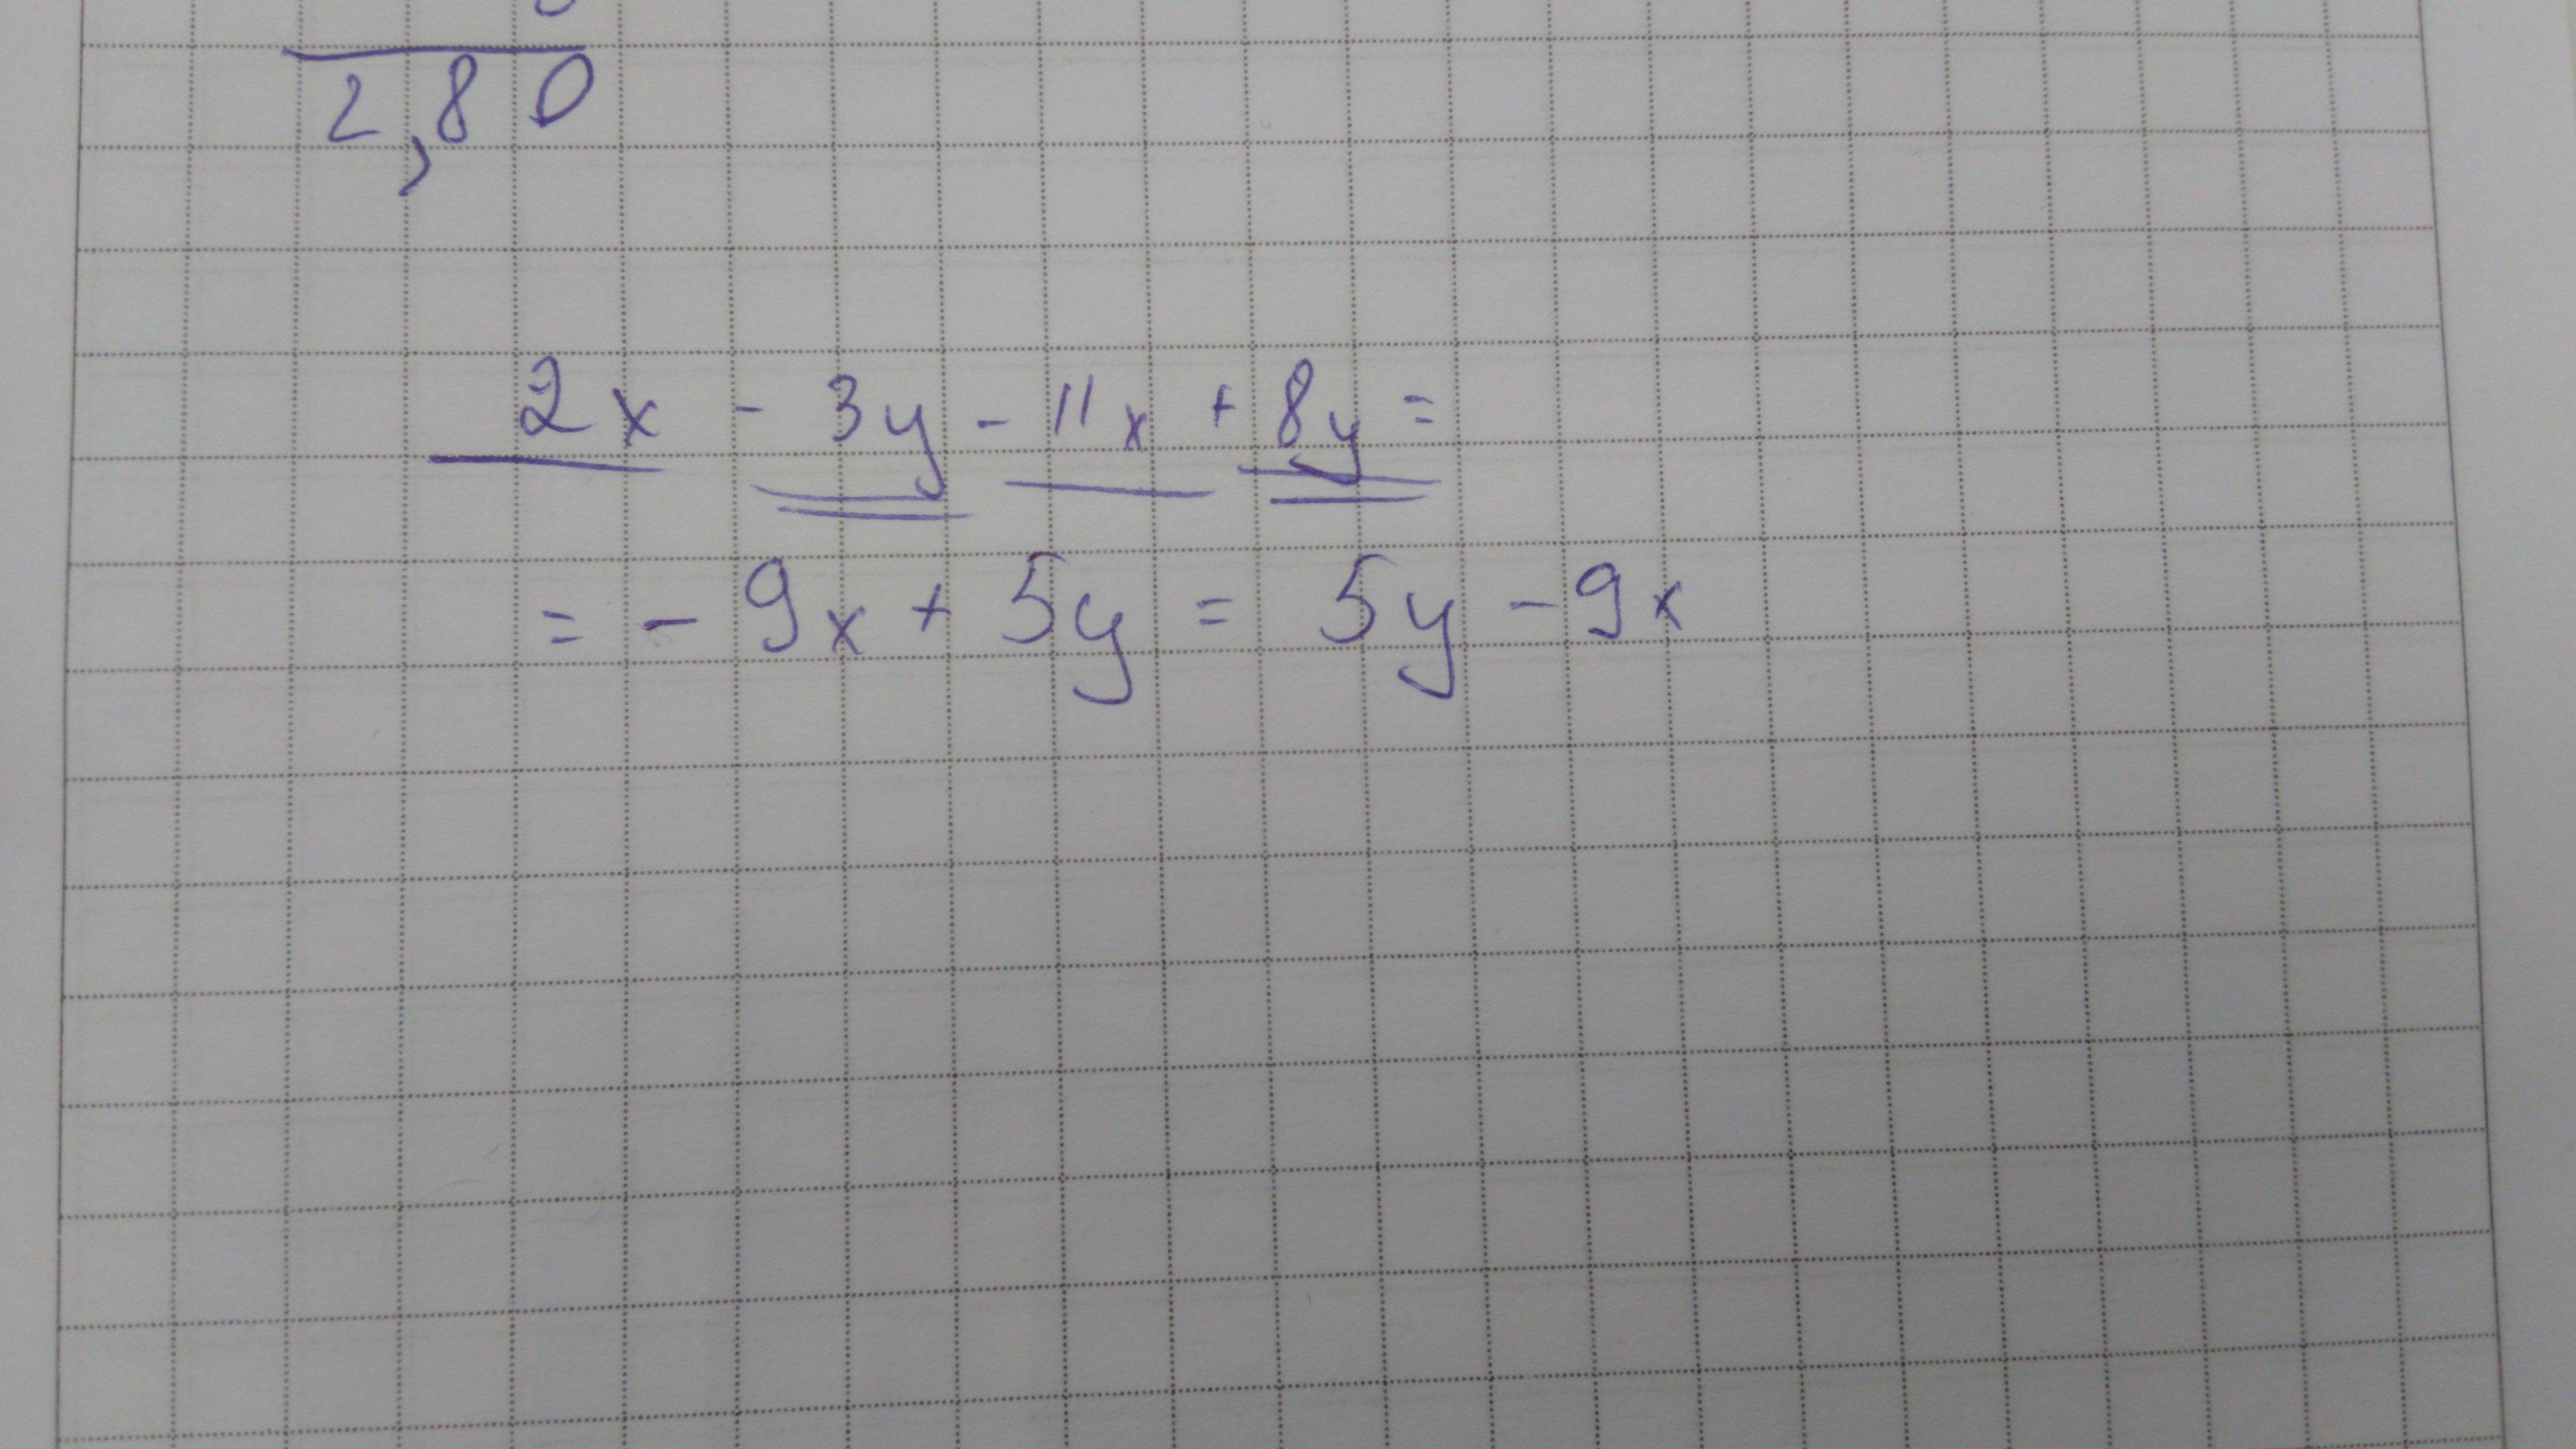 2,80
2x - 3y - 11x + 8y =
= - 9x + 5y = 5y - 9x